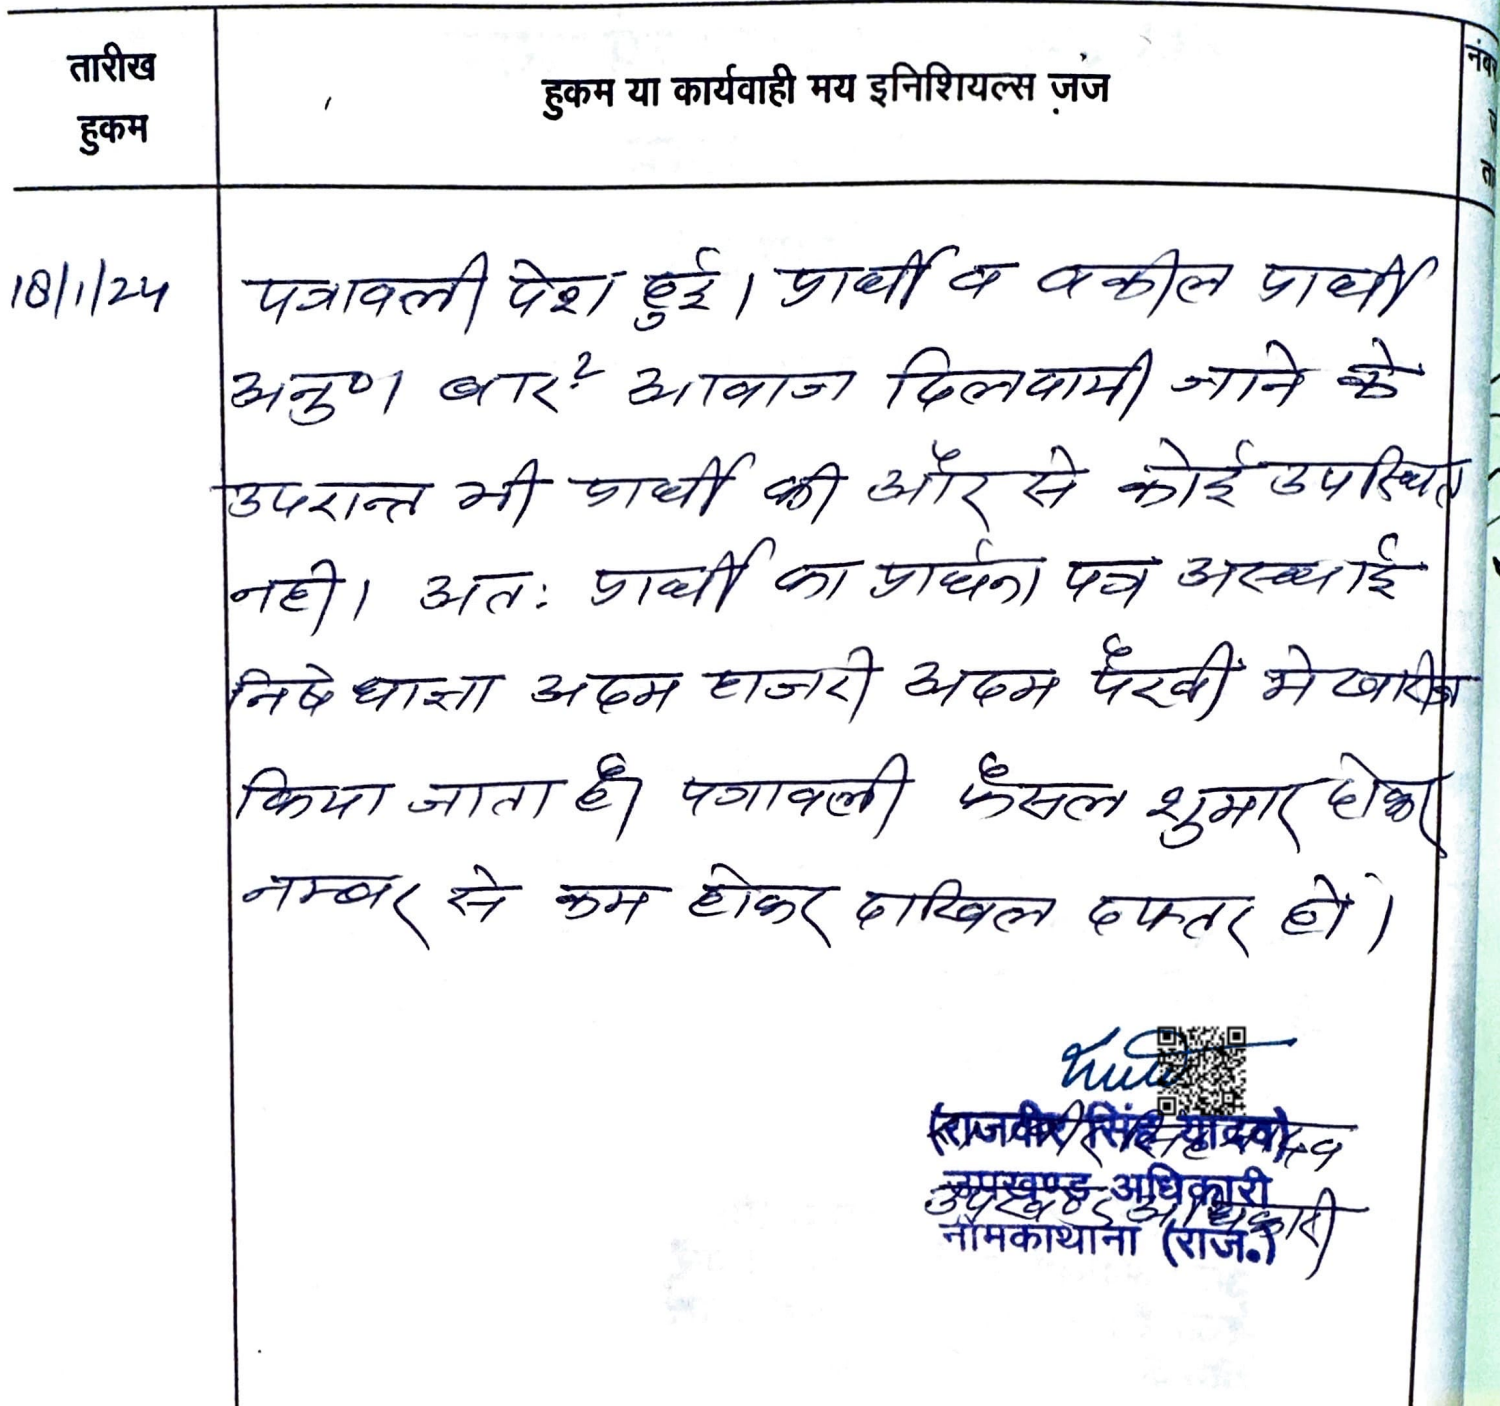 तारीख
हुकम
हुकम या कार्यवाही मय इनिशियल्स जज
18/1/24
पत्रावली पेश हुई। प्रार्थी व वकील प्रार्थी
अनु० बार२ आवाज दिलवायी जाने के
उपरान्त भी प्रार्थी की और से कोई उपस्थित
नही। अत: प्रार्थी का प्रार्थना पत्र अस्थाई
निषेधाज्ञा अदम हाजरी अदम पैरवी मे खारीज
किया जाता है। पत्रावली फैसल शुमार होकर
नम्बर से कम होकर दाखिल दफ्तर हो।
(राजवीर सिंह यादव)
उपखण्ड अधिकारी
नीमकाथाना (राज.)
उपखण्ड अधिकारी